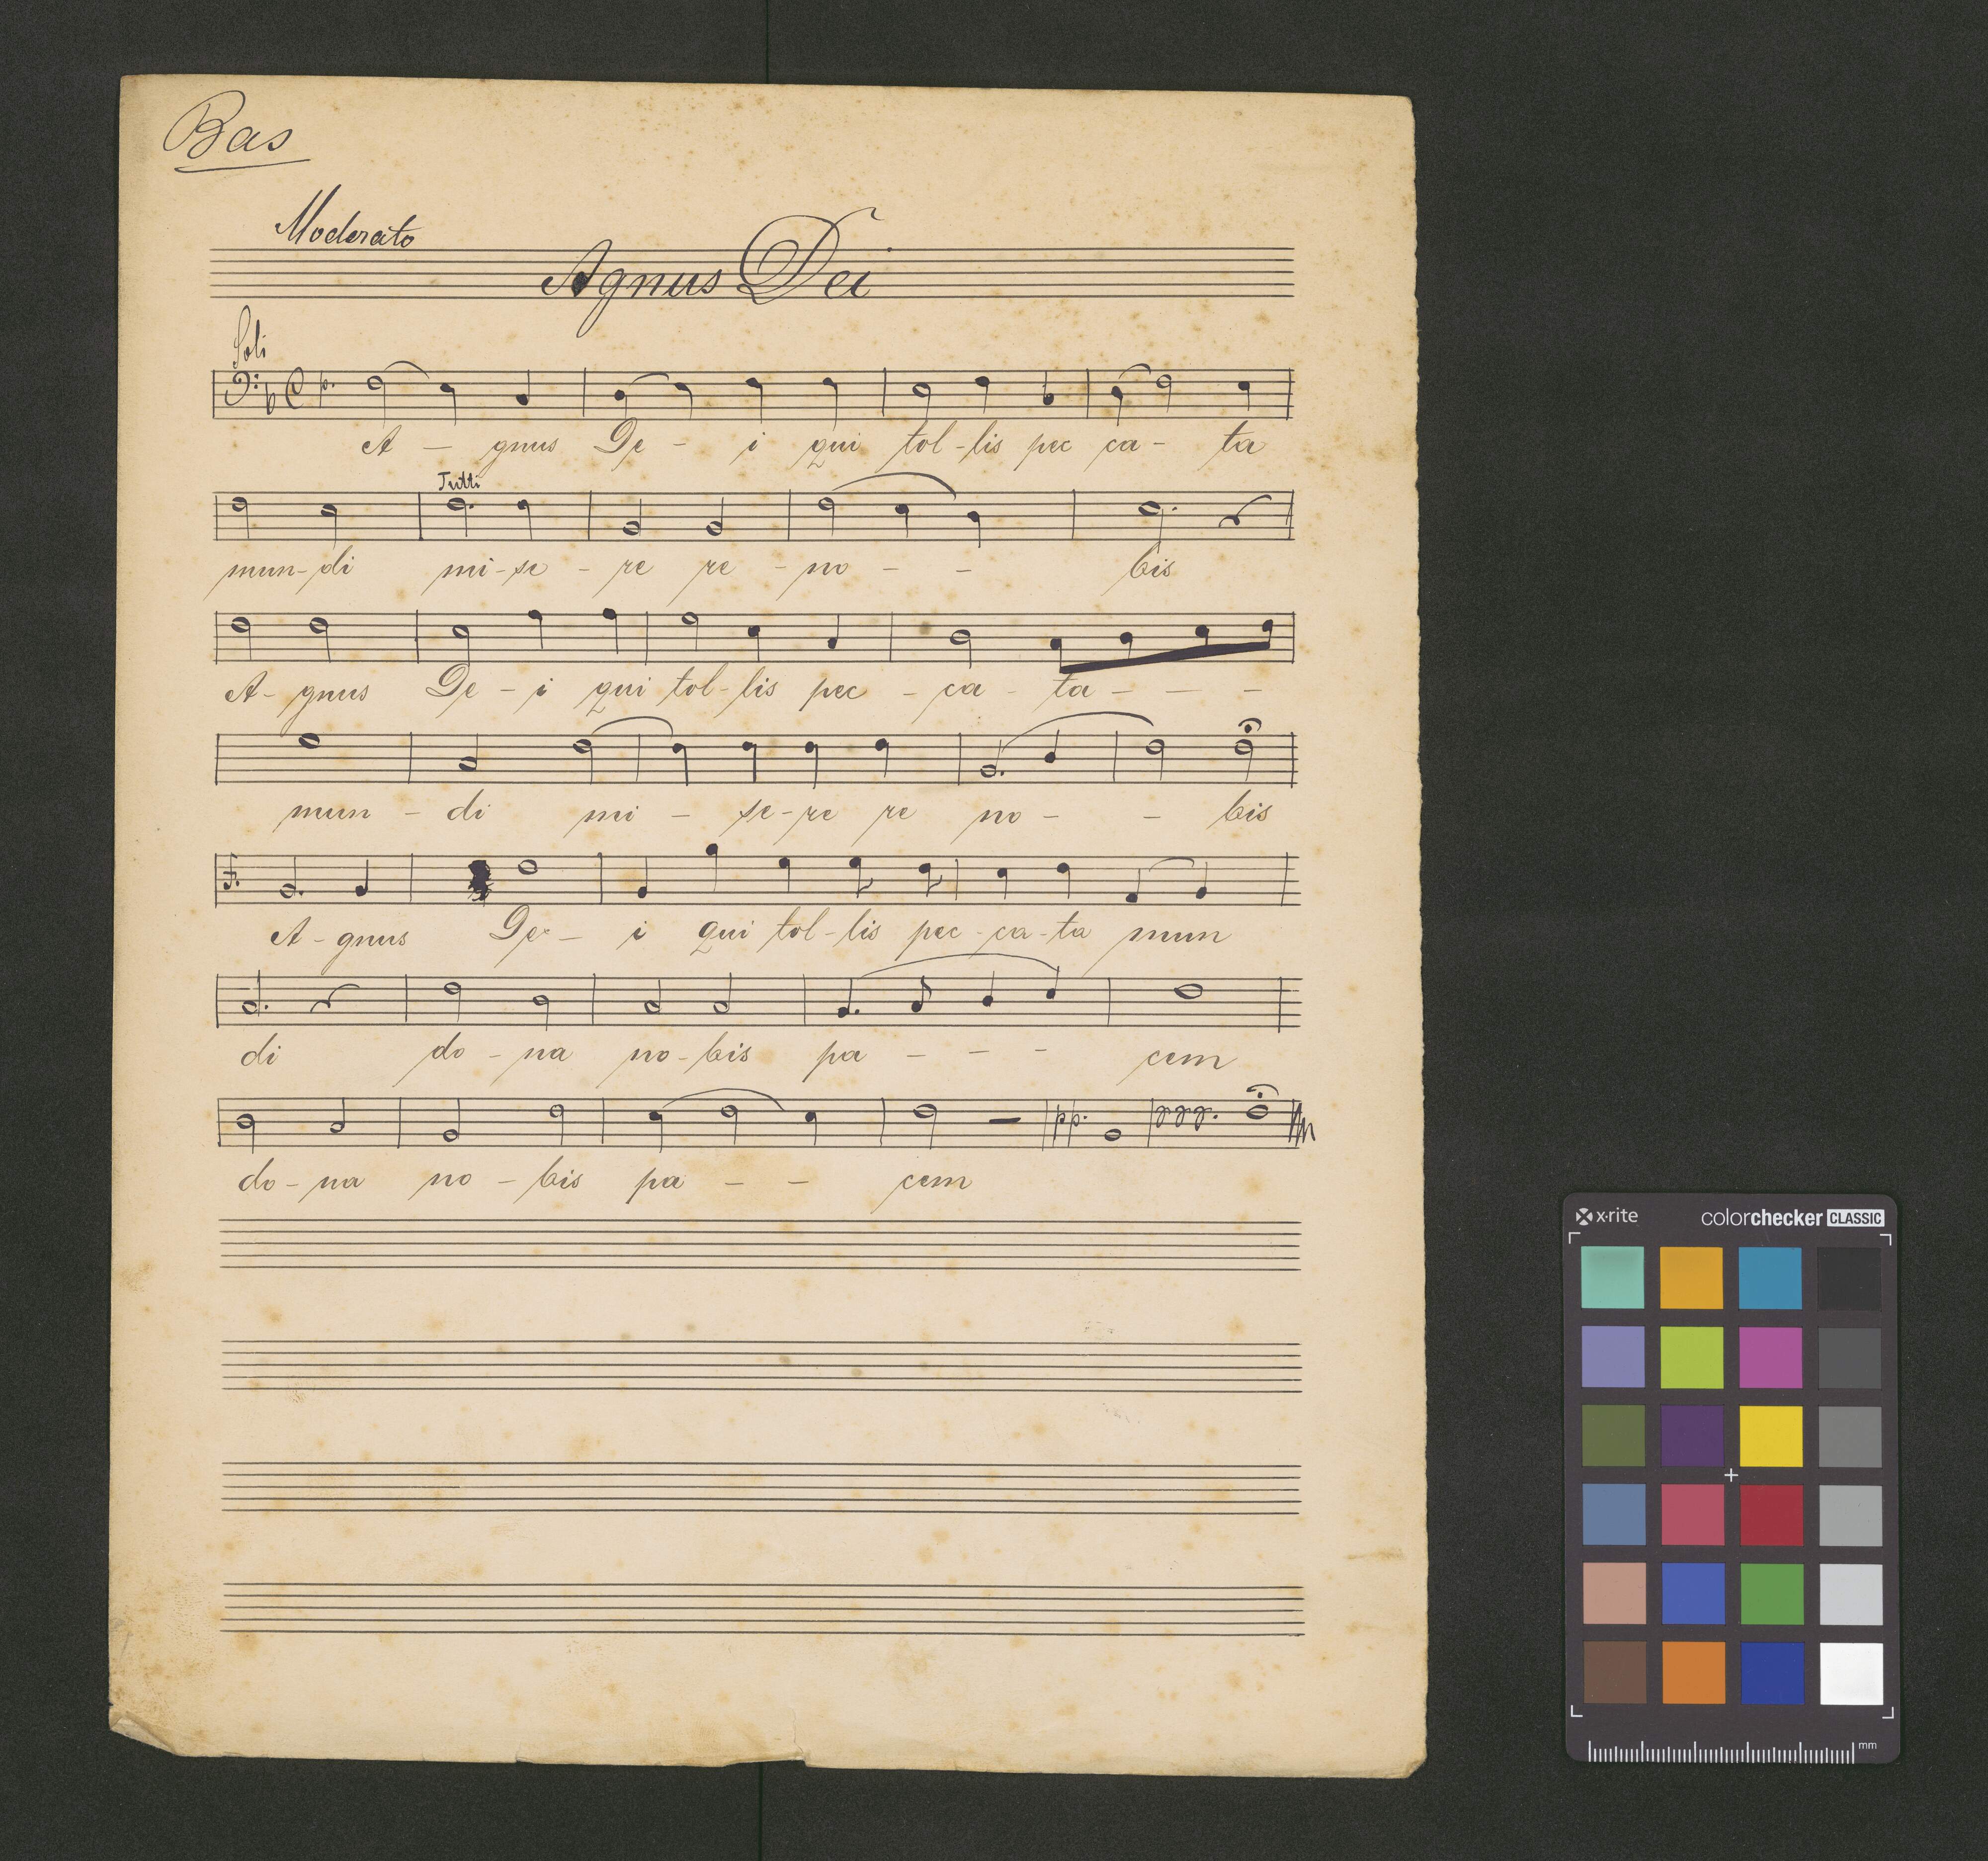 Bas
Moderato
Agnus Dei
Soli
p.
A - gnus De - i qui tol - lis pec ca - ta
Tutti
mun - di mi - se - re re - no - - bis
A - gnus De - i qui tol - lis pec - ca - ta - - -
mun - di mi - se - re re no - - bis
A - gnus De - i qui tol - lis pec - ca - ta mun
di do - na no - bis pa - - - cem
pp. ppp.
do - na no - bis pa - - cem
x·rite colorchecker CLASSIC
mm